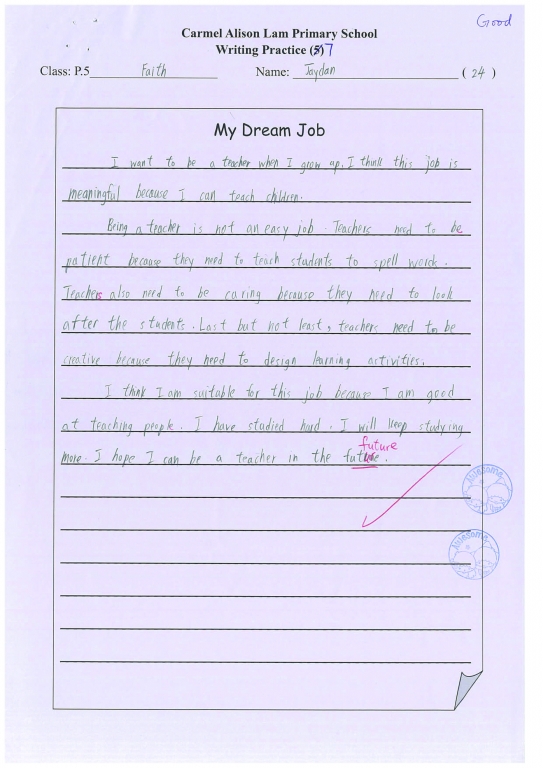 Good
Carmel Alison Lam Primary School
Writing Practice (5)7
Class: P.5 Faith Name: Jaydan (24)
My Dream Job
I want to be a teacher when I grow up. I think this job is
meaningful because I can teach children.
Being a teacher is not an easy job. Teachers need to be
patient because they need to teach students to spell words.
Teachers also need to be caring because they need to look
after the students. Last but not least, teachers need to be
creative because they need to design learning activities.
I think I am suitable for this job because I am good
at teaching people. I have studied hard. I will keep studying
future
more. I hope I can be a teacher in the future.
Awesome
Awesome